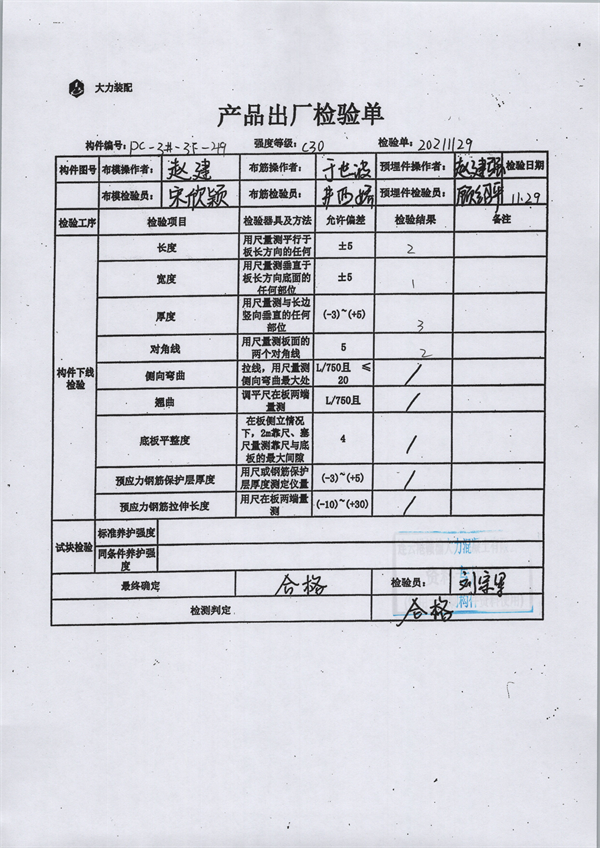 大力装配
产品出厂检验单
构件编号: PC-3#-3F-49 强度等级: C30 检验单: 20211129
构件图号 布模操作者: 赵建 布筋操作者: 于世波 预埋件操作者: 赵建强 检验日期
布模检验员: 宋欣颖 布筋检验员: 预埋件检验员: 11.29
检验工序 检验项目 检验器具及方法 允许偏差 检验结果 备注
构件下线检验
长度 用尺量测平行于板长方向的任何 ±5 2
宽度 用尺量测垂直于板长方向底面的任何部位 ±5 1
厚度 用尺量测与长边竖向垂直的任何部位 (-3)~(+5) 3
对角线 用尺量测板面的两个对角线 5 2
侧向弯曲 拉线，用尺量测侧向弯曲最大处 L/750且 ≤20 /
翘曲 调平尺在板两端量测 L/750且 /
底板平整度 在板侧立情况下，2m靠尺、塞尺量测靠尺与底板的最大间隙 4 /
预应力钢筋保护层厚度 用尺或钢筋保护层厚度测定仪量 (-3)~(+5) /
预应力钢筋拉伸长度 用尺在板两端量测 (-10)~(+30) /
试块检验 标准养护强度
同条件养护强度
最终确定 合格 检验员:
检测判定 合格